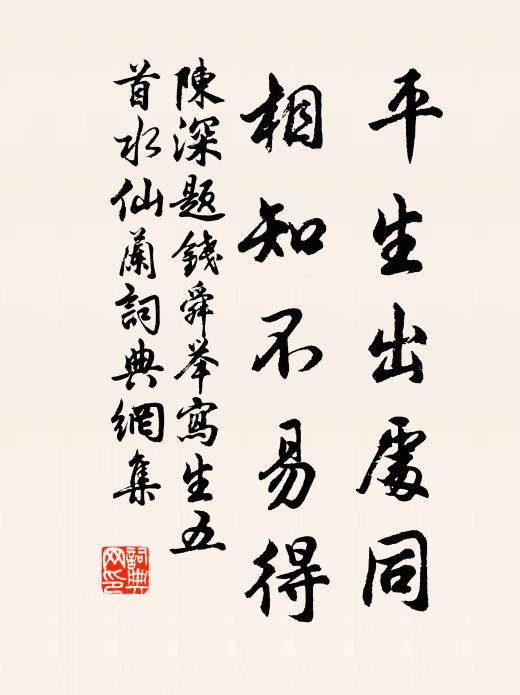 平生出處同
相知不易得
陳深題錢舜举寫生五
首水仙蘭詞典網集
詞典
网印